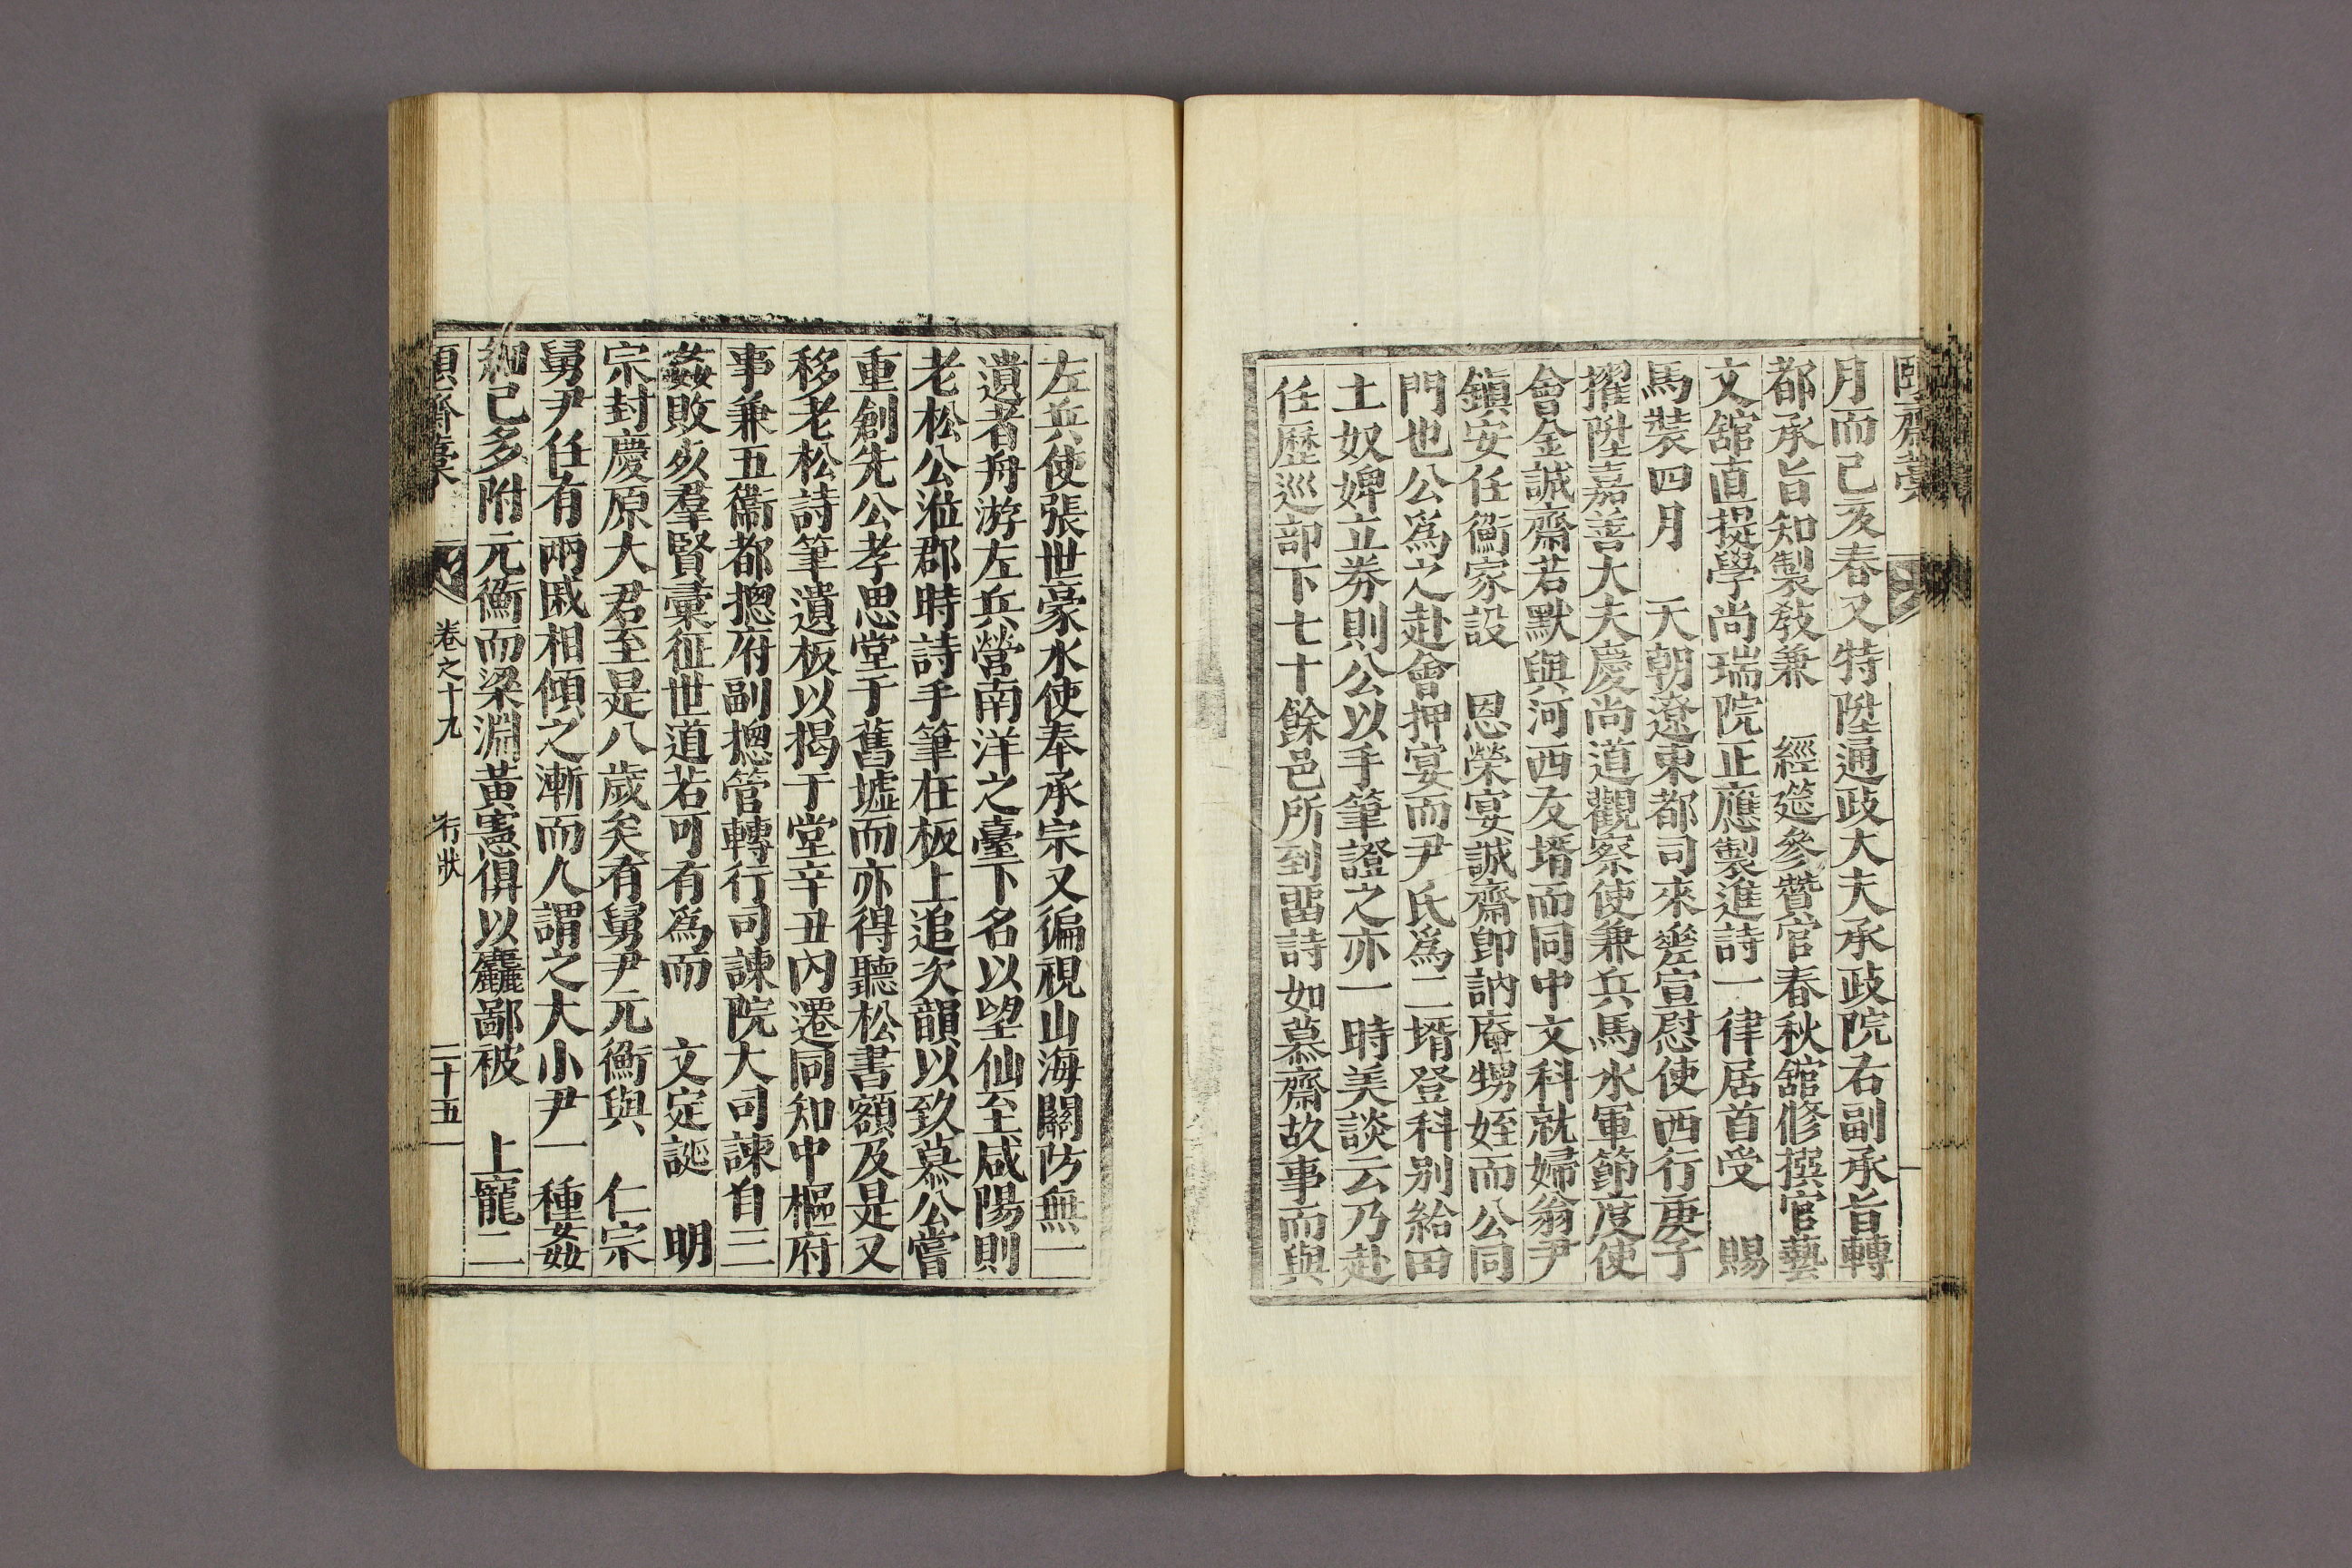 頤齋藁
月而己亥春又特陞通政大夫承政院右副承旨轉
都承旨知製敎兼　經筵參贊官春秋舘修撰官藝
文舘直提學尚瑞院正應製進詩一律居首受　賜
馬裝四月　天朝遼東都司來差宣慰使西行庚子
擢陞嘉善大夫慶尚道觀察使兼兵馬水軍節度使
會金誠齋若默與河西友壻而同中文科就婦翁尹
鎭安任衡家設　恩榮宴誠齋卽訥庵甥姪而公同
門也公爲之赴會押宴而尹氏爲二壻登科別給田
土奴婢立券則公以手筆證之亦一時美談云乃赴
任歷巡部下七十餘邑所到留詩如慕齋故事而與
左兵使張世豪水使奉承宗又徧視山海關防無一
遺者舟游左兵營南洋之臺下名以望仙至咸陽則
老松公涖郡時詩手筆在板上追次韻以致慕公嘗
重創先公孝思堂于舊墟而亦得聽松書額及是又
移老松詩筆遺板以揭于堂辛丑內遷同知中樞府
事兼五衞都摠府副摠管轉行司諫院大司諫自三
姦敗亥羣賢彙征世道若可有爲而　文定誕　明
宗封慶原大君至是八歲矣有舅尹元衡與　仁宗
舅尹任有兩戚相傾之漸而人謂之大小尹一種姦
細已多附元衡而梁淵黃憲俱以麤鄙被　上寵二
頤齋藁　卷之十九　行狀　二十五